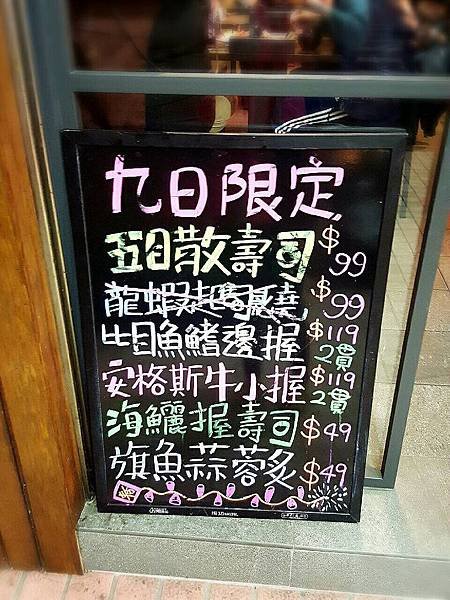 九日限定
五目散壽司 $99
龍蝦起司燒 $99
比目魚鰭邊握 $119 2貫
安格斯牛小握 $119 2貫
海鱺握壽司 $49
旗魚蒜蓉炙 $49